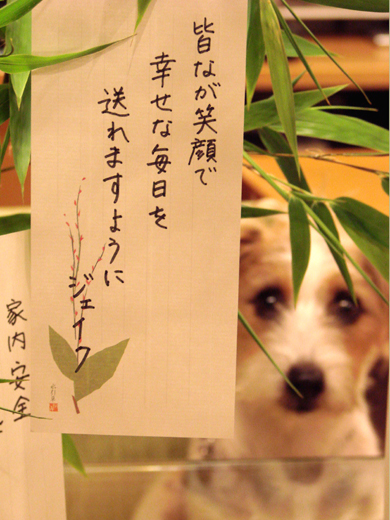 皆なが笑顔で
幸せな毎日を
送れますように
ジェイク
家内安全